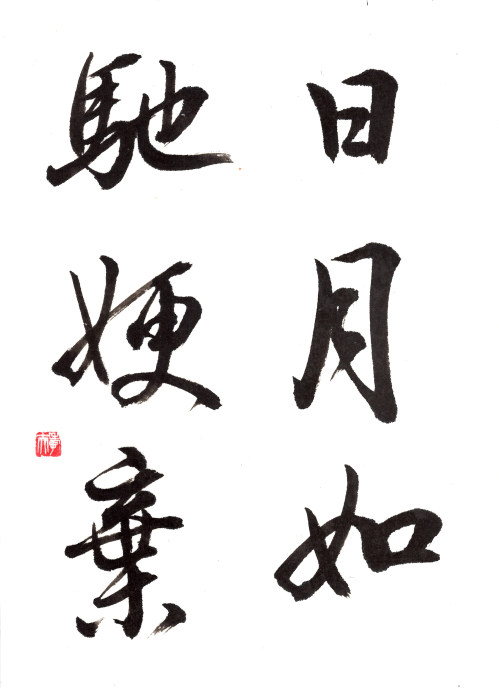 日月如
馳㛐棄